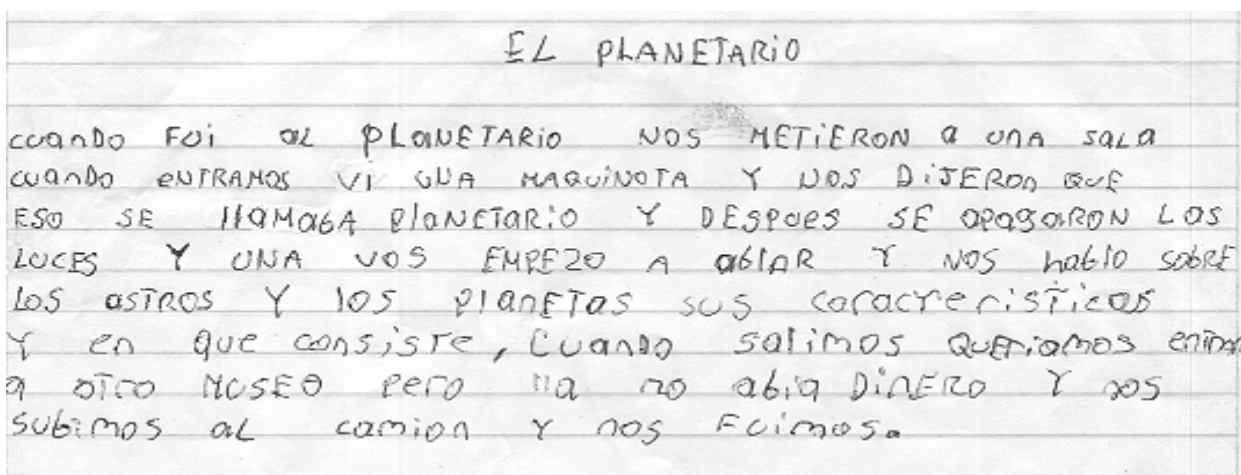 EL PLANETARIO
cuanDo Foi aL PLaNETARiO NOS METiERON a una saLa
cuanDo eNTRAMOS Vi UNA MAQUiNOTA Y NOS DiJERON QUE
ESO SE llaMabA PlaNETARiO Y DESPUES SE apagaRON Las
LUCES Y UNA VOS EMPEZO A ablaR Y NOS hablo sobRE
Los asTROS Y los planETas sus caracTerisTicas
Y en que consisTe, Cuando salimos queriamos entrar
a oTro MUSEO Pero lla no abia DinERO Y nos
subimos aL camion Y nos Fuimos.